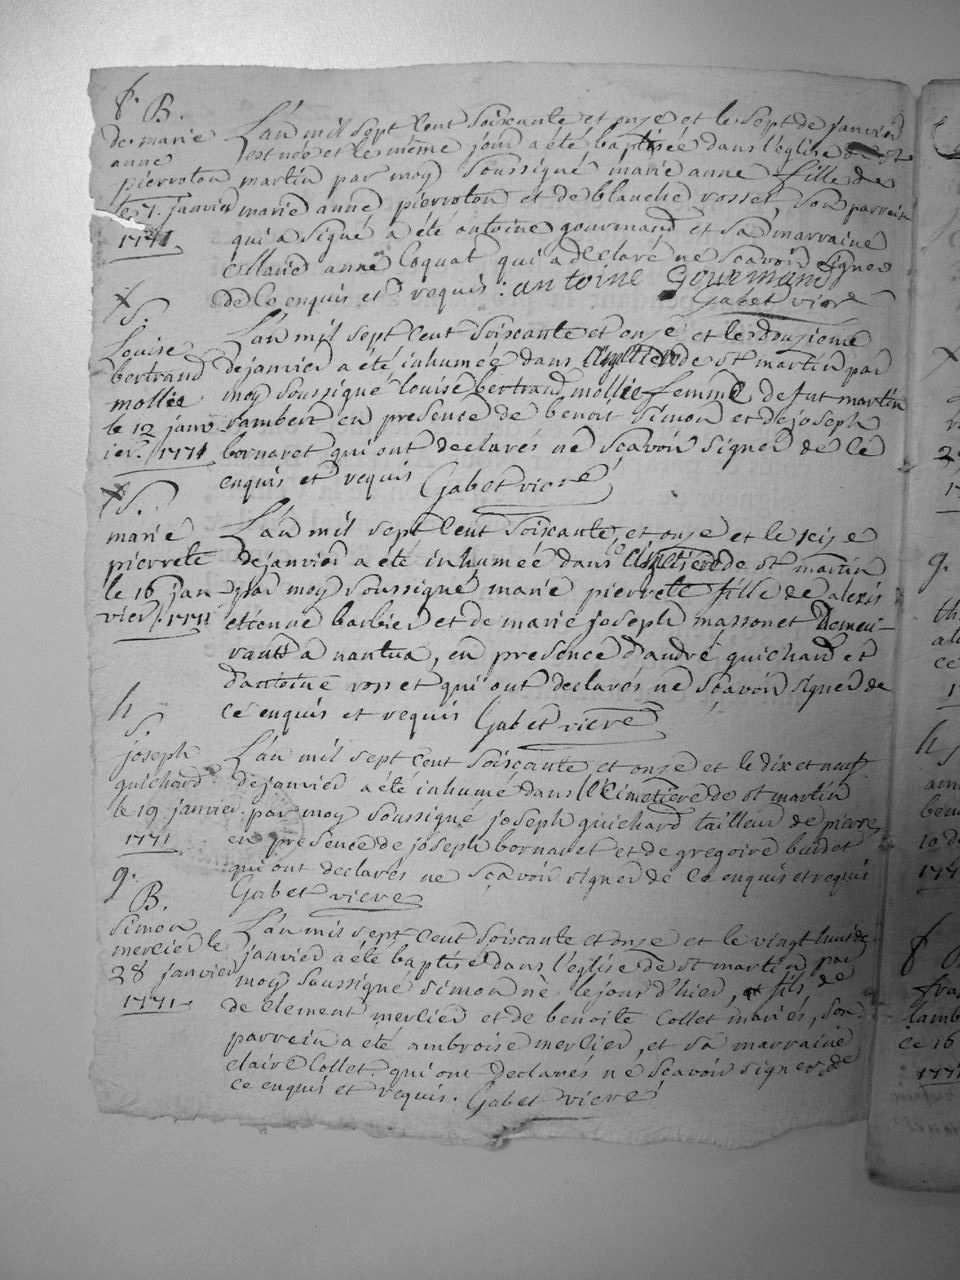 f. B.
de marie
anne
pierroton
le 7. janvier
1771
L'an mil sept cent soixante et onze et le sept de janvier
est née et le même jour a été baptisée dans l'église de st
martin par moy soussigné marie anne fille de
marie anne pierroton et de blanche rosset son parrain
qui a signé a été antoine gourmand et sa marraine
anne Coquat qui a declaré ne scavoir signer
de ce enquis et requis : antoine Gourmand
Gabet vicre
S.
Louise
bertrand
mollie
le 12 janv
ier 1771
L'an mil sept cent soixante et onze et le douzieme
de janvier a été inhumée dans le cimetiere de st martin par
moy soussigné Louise bertrand mollie femme de fut martin
lambert en presence de benoit simon et de joseph
bornaret qui ont declarés ne scavoir signer de ce
enquis et requis Gabet vicre
S.
marie
pierrete
le 16 jan
vier 1771
L'an mil sept cent soixante et onze et le seize
de janvier a été inhumée dans le Cimetiere de st martin
par moy soussigné marie pierrete fille de alexis
etienne barbier et de marie joseph massonet demeu-
rants a nantua, en presence d'andré guichard et
d'antoine rosset qui ont declarés ne scavoir signer de
ce enquis et requis Gabet vicre
h
S.
joseph
guichard
le 19 janvier
1771
L'an mil sept cent soixante et onze et le dix et neuf
de janvier a été inhumé dans le Cimetiere de st martin
par moy soussigné joseph guichard tailleur de pierre
en presence de joseph bornaret et de gregoire burdet
qui ont declarés ne scavoir signer de ce enquis et requis
Gabet vicre
g.
B.
simon
mercier le
28 janvier
1771
L'an mil sept cent soixante et onze et le vingt huit de
janvier a été baptisé dans l'église de st martin par
moy soussigné simon né le jour d'hier, fils de
de clement mercier et de benoite Collet mariés, son
parrein a été ambroise mercier, et sa marraine
claire Collet, qui ont declarés ne scavoir signer de
ce enquis et requis. Gabet vicre